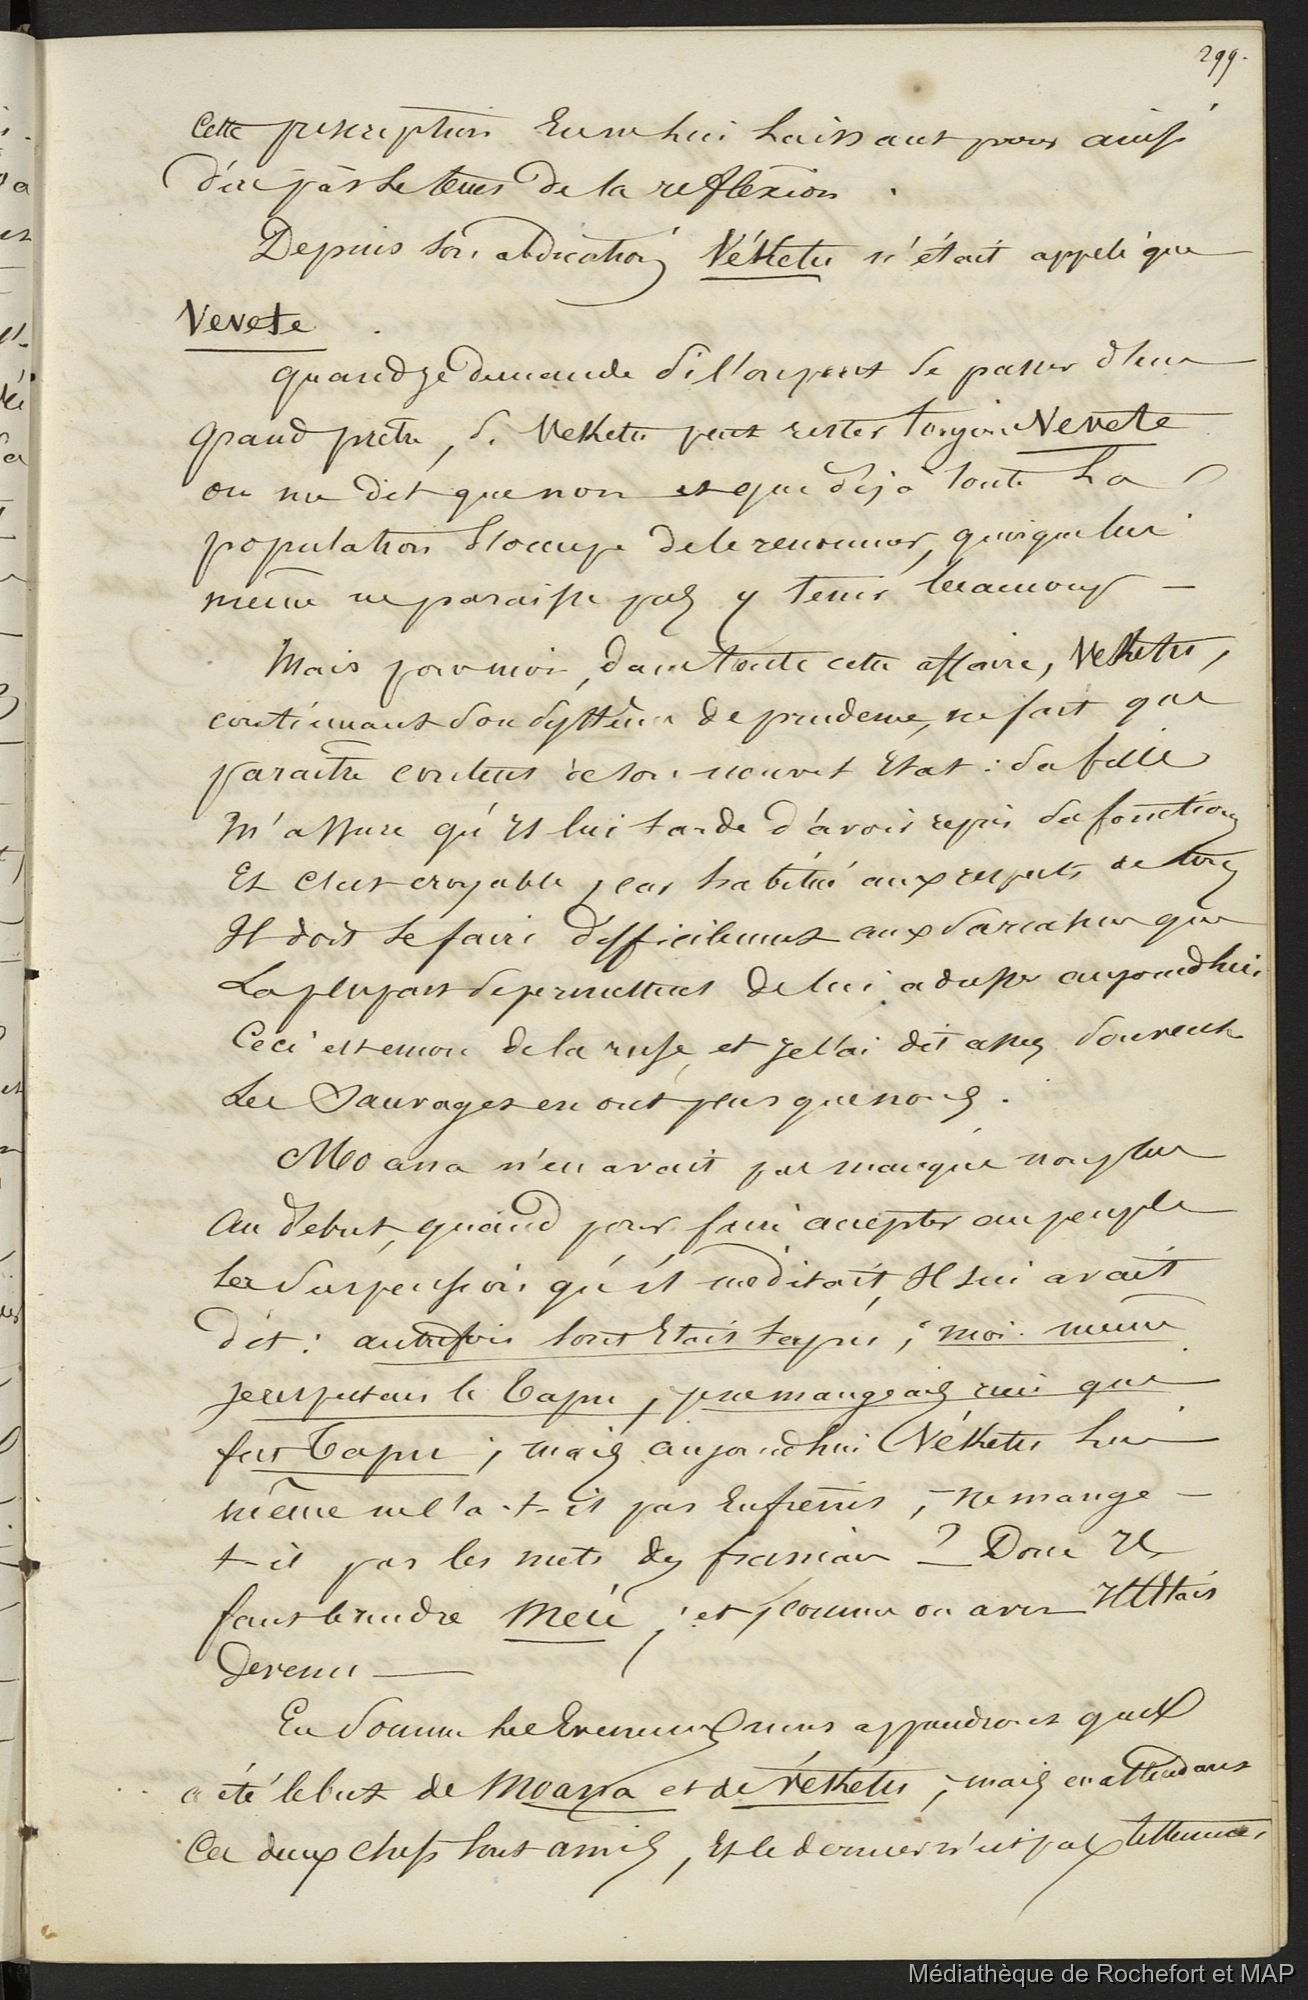 299.
Cette prescription en ne lui laissant pour ainsi
dire pas le tems de la reflexion.
Depuis son abdication, Vékétu n'était appelé que
Vevete.
quand je demande si l'on peut se passer d'un
grand prêtre, si Veketu peut rester toujours Nevete
on me dit que non et que déjà toute la
population s'occupe de le renommer, quoique lui
même ne paraisse pas y tenir beaucoup —
Mais pour moi, dans toute cette affaire, Veketu,
continuant son système de prudence, ne fait que
paraitre content de son nouvel Etat : sa fille
m'assure qu'Il lui tarde d'avoir repris sa fonction
Et c'est croyable, car habitué aux respects de tous
Il doit se faire difficilement aux que
La plupart se permettent de lui adresser aujourd'hui
Ceci est encore de la ruse, et je l'ai dit assez souvent
Les Sauvages en ont plus que nous.
Moana n'en avait pas manqué non plus
au début, quand pour faire accepter au peuple
la suspension qu'il méditait, Il lui avait
dit : autrefois tout Etait tapu ; moi-même
je respectais le Tapu, je ne mangeais rien que
fut Tapu ; mais aujourdhui Véketu lui
même ne l'a-t-il pas enfreint, ne mange-
t-il pas les mets des francais ? Donc Il
faut le rendre Méïé ; et comme on a vu Il l'Etait
devenu —
En somme les Evenemens nous apprendront quel
a été le but de Moana et de Vékétu ; mais en attendant
Ces deux chefs sont amis, Et le dernier n'est pas tellement
Médiathèque de Rochefort et MAP